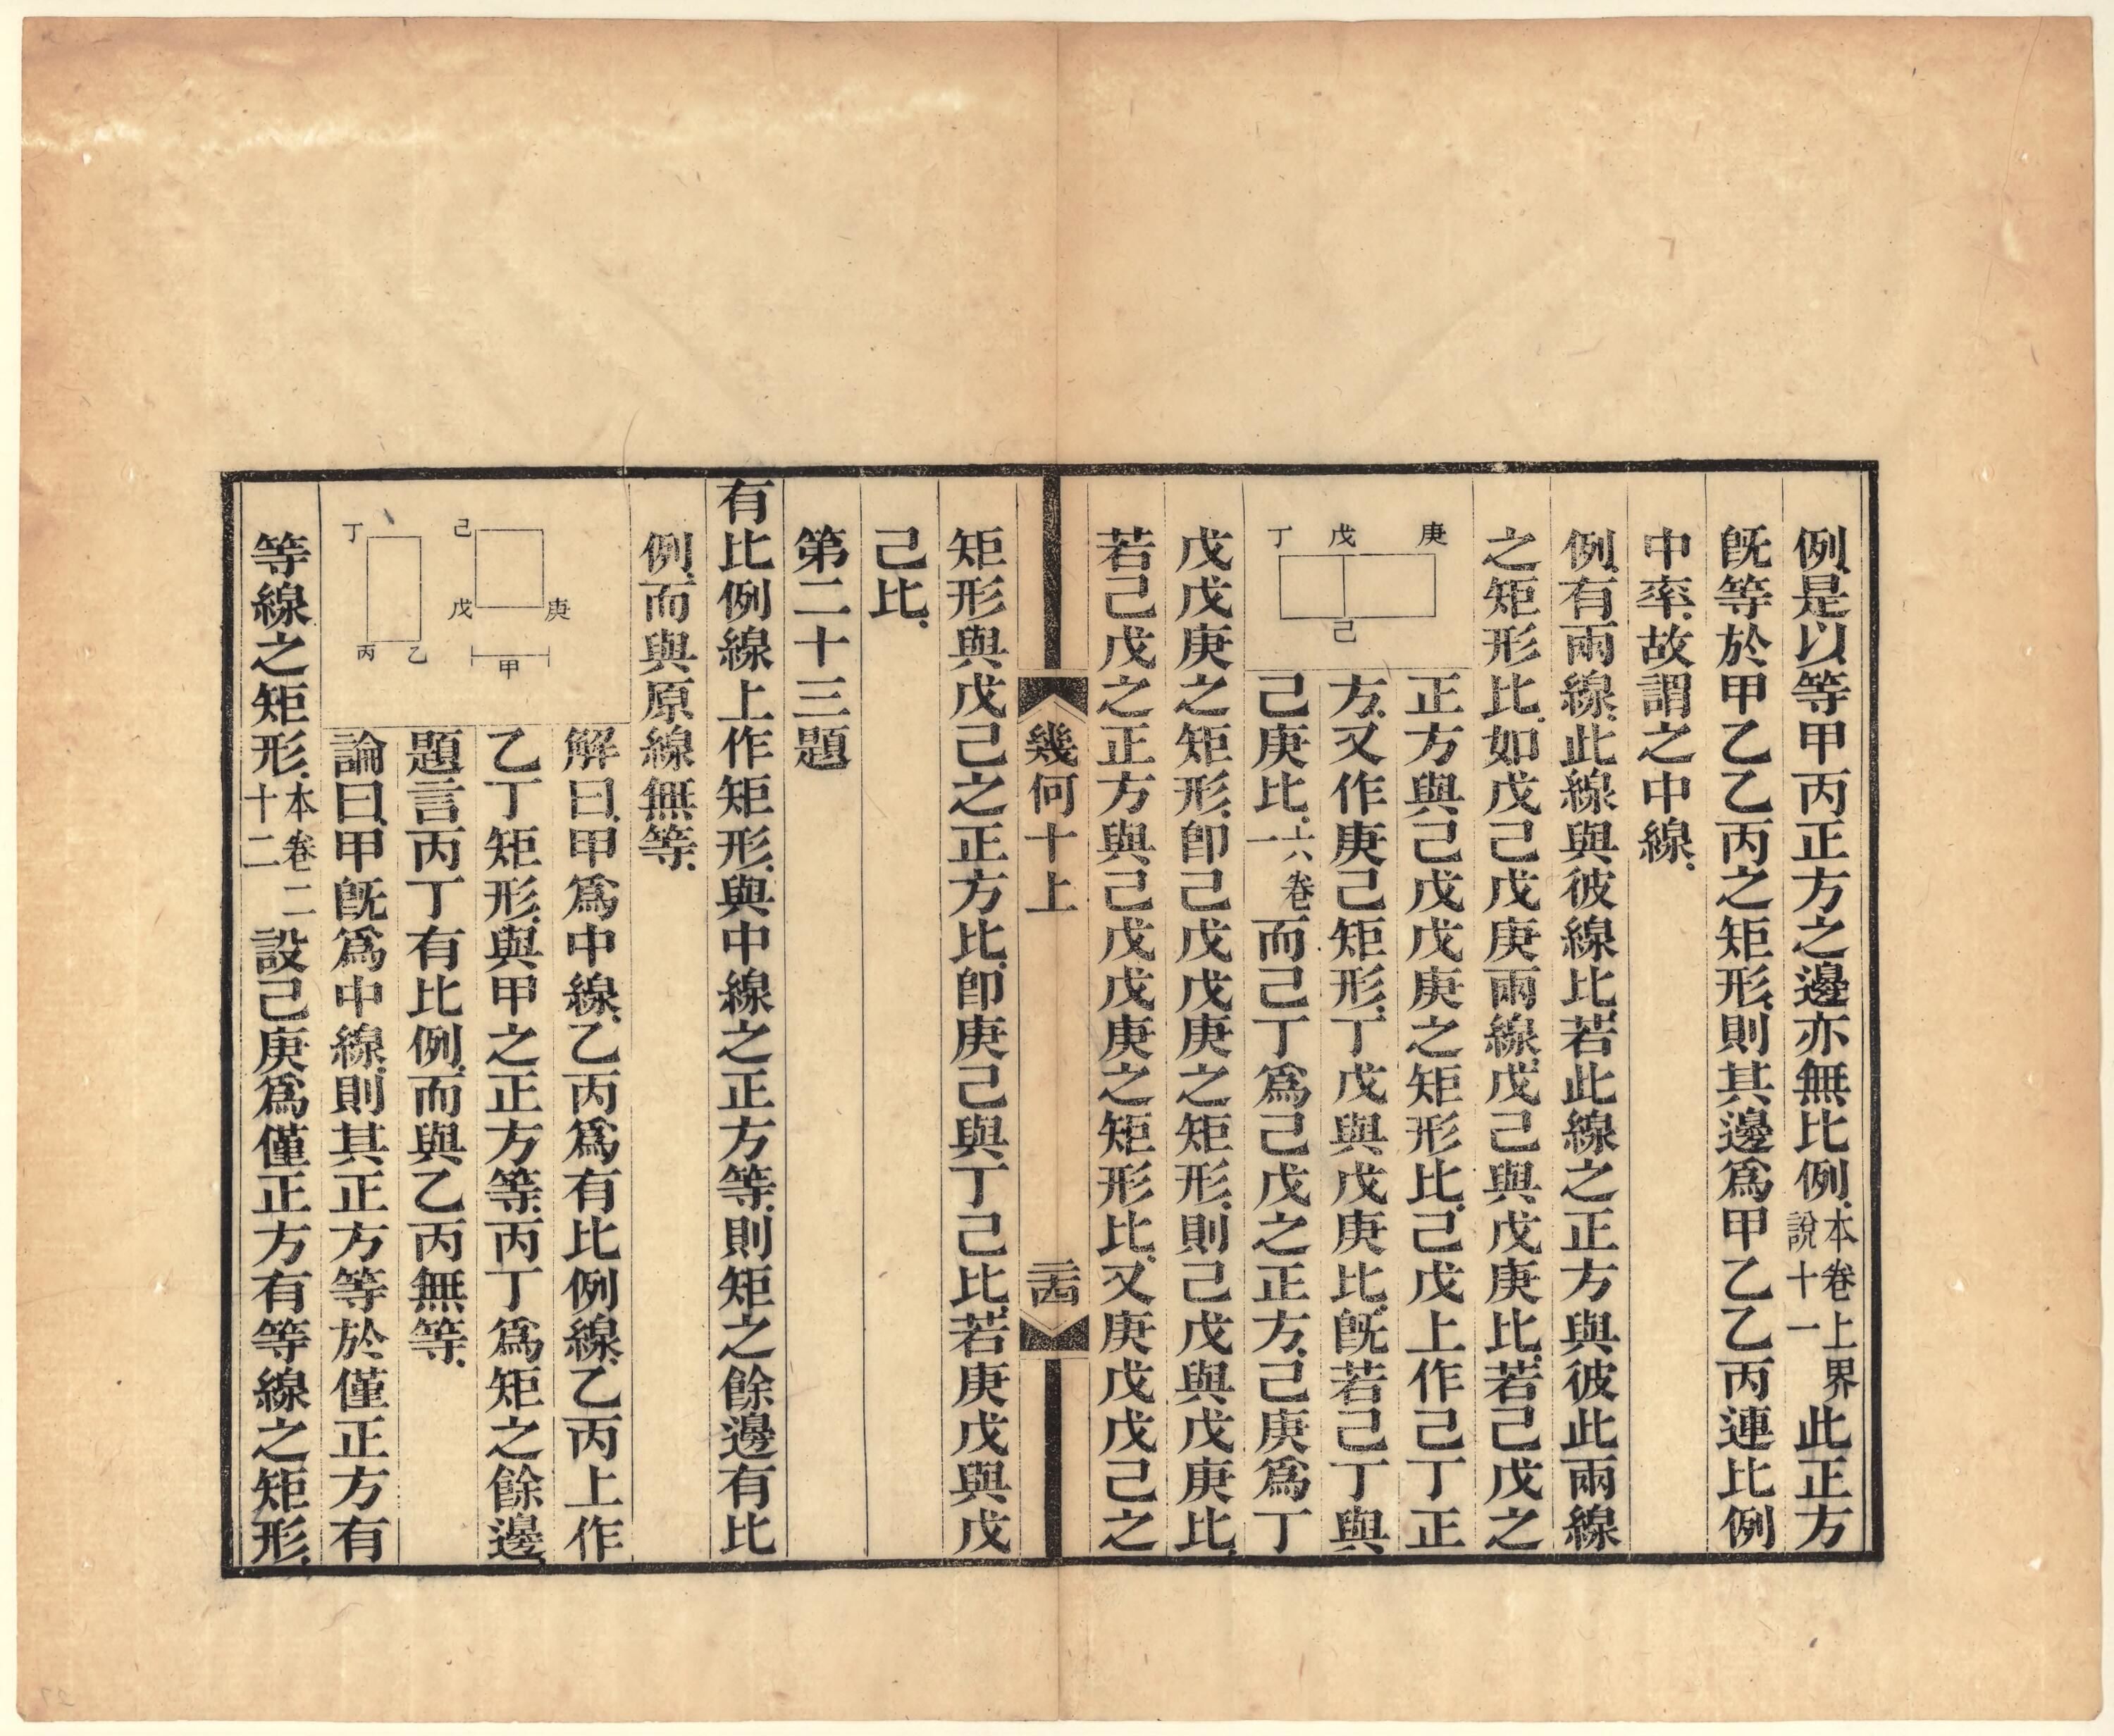 例.是以等甲丙正方之邊亦無比例.本卷上界說十一此正方
旣等於甲乙乙丙之矩形.則其邊爲甲乙乙丙連比例
中率.故謂之中線.
例.有兩線.此線與彼線比.若此線之正方與彼此兩線
之矩形比.如戊己戊庚兩線.戊己與戊庚比.若己戊之
丁 戊 庚
己
正方與己戊戊庚之矩形比.己戊上作己丁正
方.又作庚己矩形.丁戊與戊庚比.旣若己丁與
己庚比.六卷一而己丁爲己戊之正方.己庚爲丁
戊戊庚之矩形.卽己戊戊庚之矩形.則己戊與戊庚比.
若己戊之正方與己戊戊庚之矩形比.又庚戊戊己之
幾何十上
二十四
矩形與戊己之正方比.卽庚己與丁己比.若庚戊與戊
己比.
第二十三題
有比例線上作矩形.與中線之正方等.則矩之餘邊有比
例.而與原線無等.
己 戊 庚
甲
丁 丙 乙
解曰.甲爲中線.乙丙爲有比例線.乙丙上作
乙丁矩形.與甲之正方等.丙丁爲矩之餘邊.
題言丙丁有比例.而與乙丙無等.
論曰.甲旣爲中線.則其正方等於僅正方有
等線之矩形.本卷二十二設己庚爲僅正方有等線之矩形.